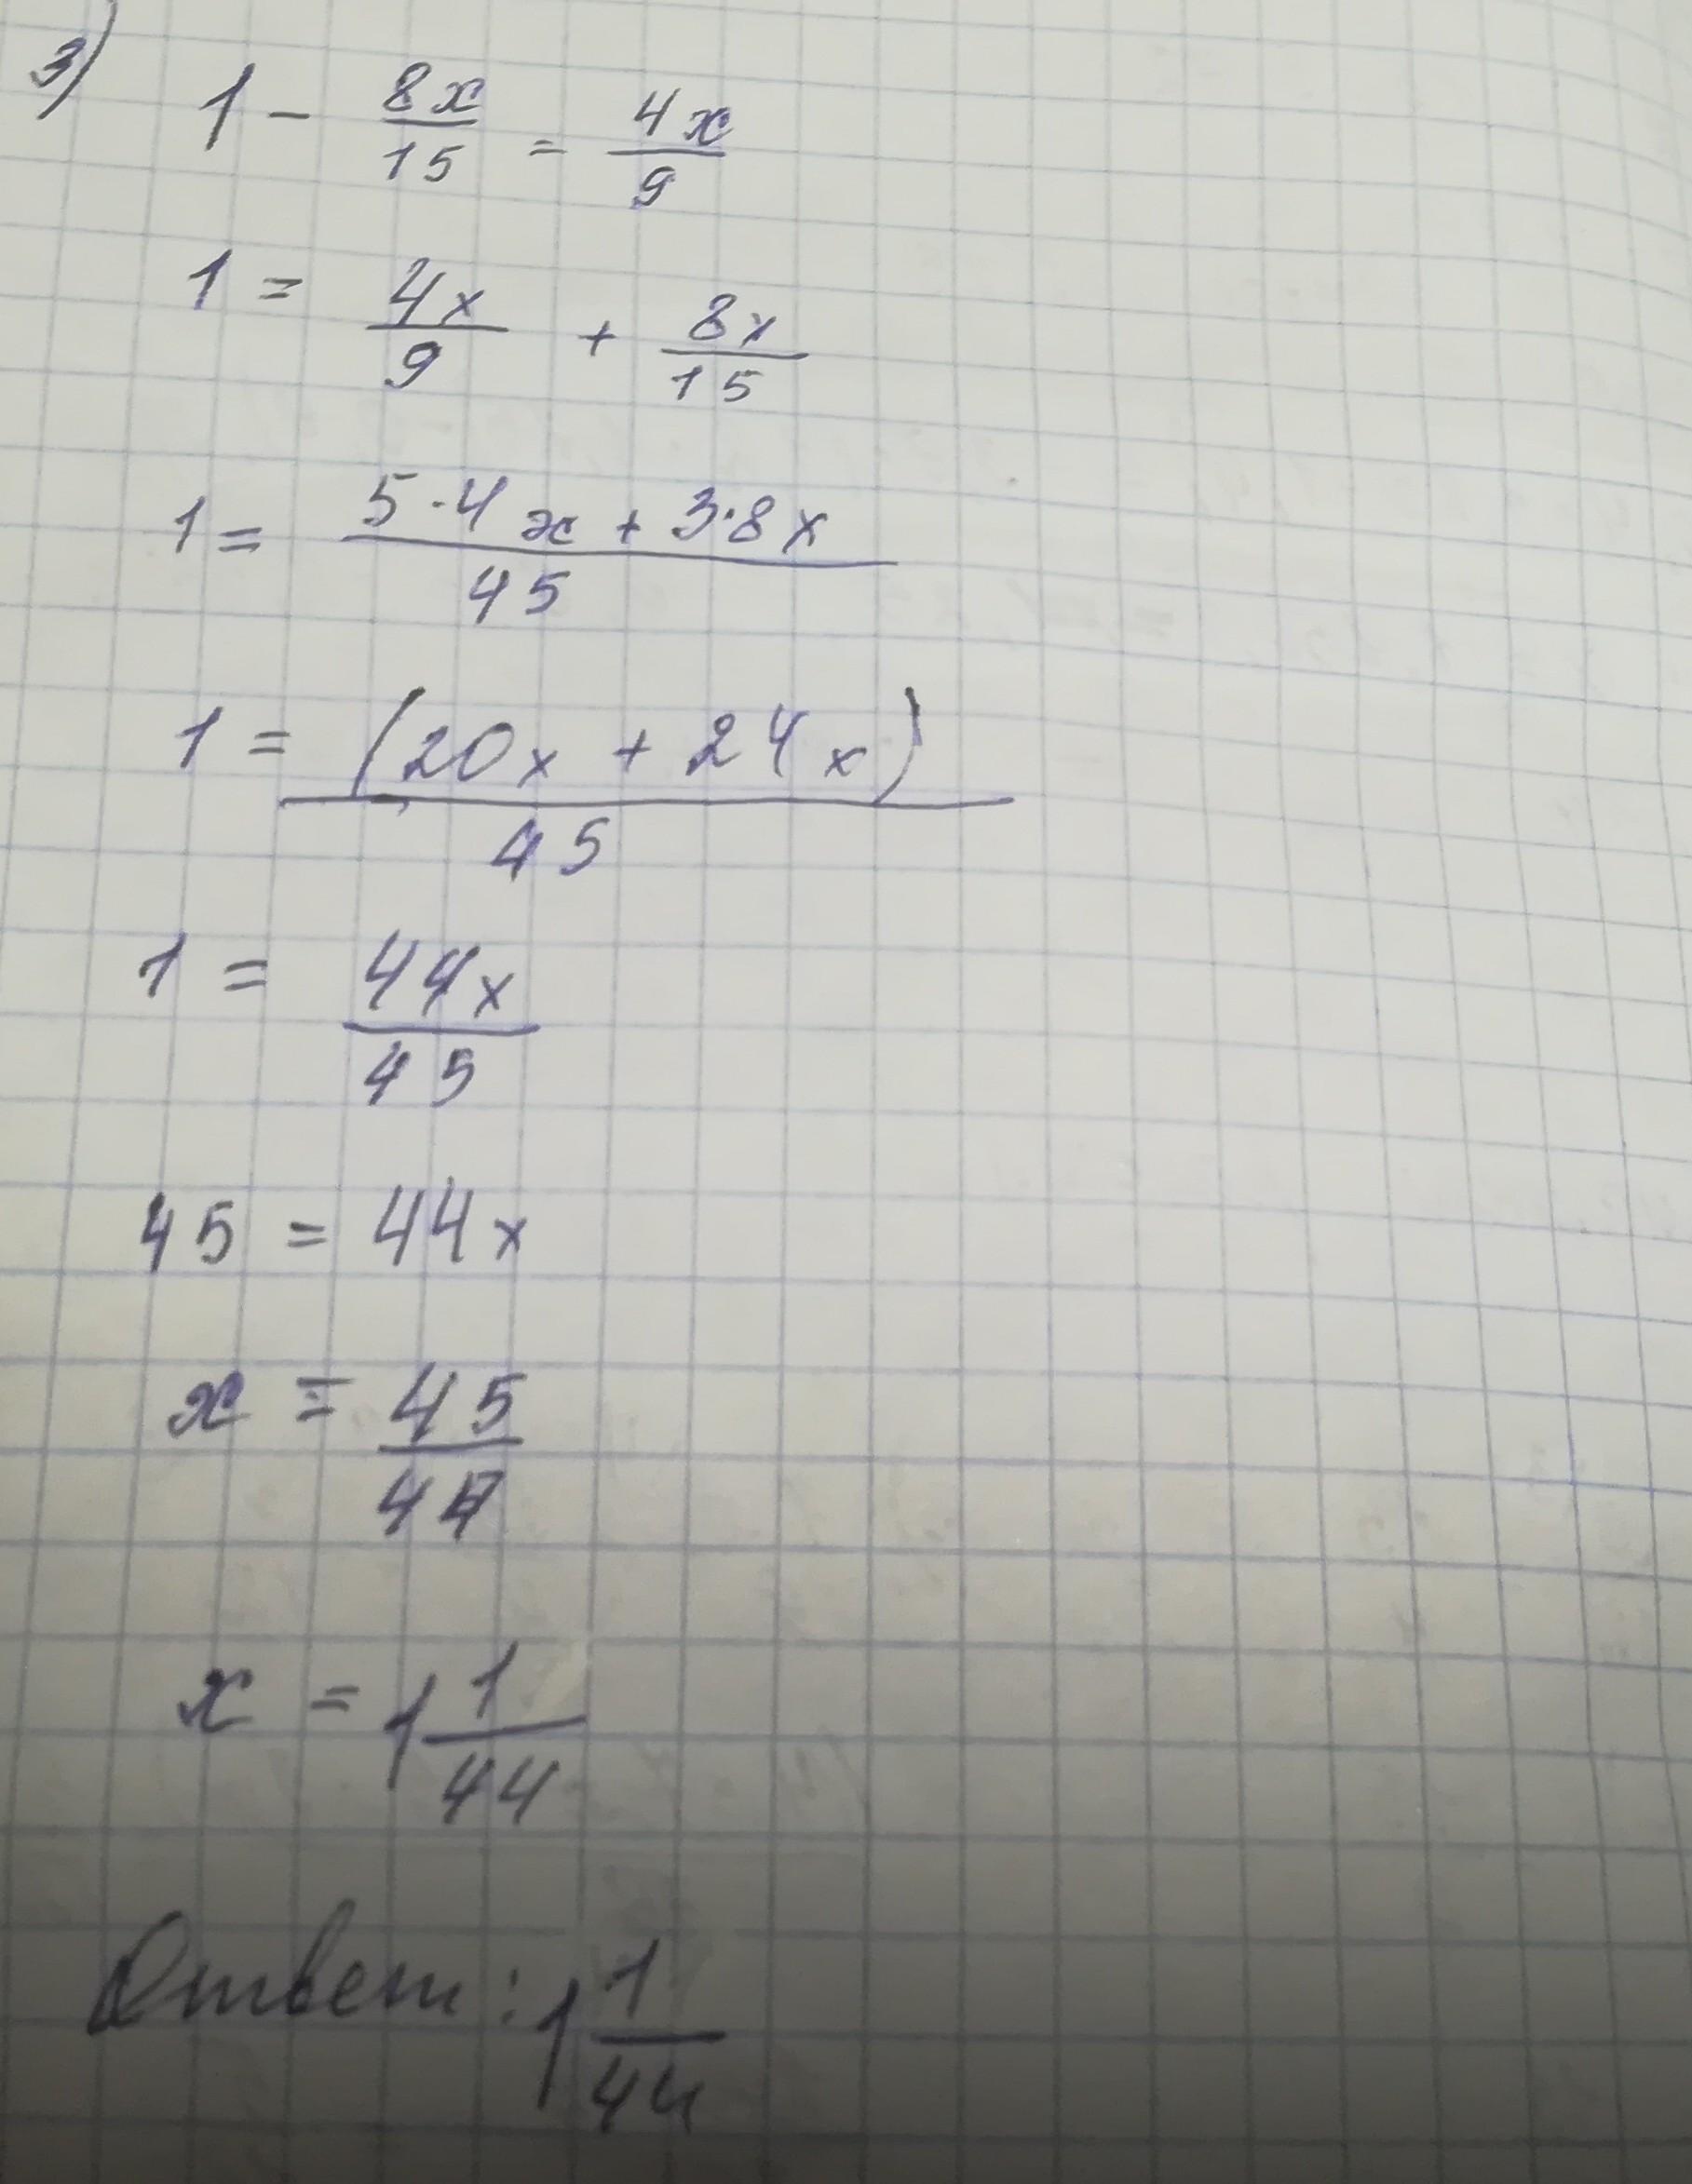 3) 1 - 8x/15 = 4x/9
1 = 4x/9 + 8x/15
1 = (5·4x + 3·8x)/45
1 = (20x + 24x)/45
1 = 44x/45
45 = 44x
x = 45/44
x = 1 1/44
Ответ: 1 1/44